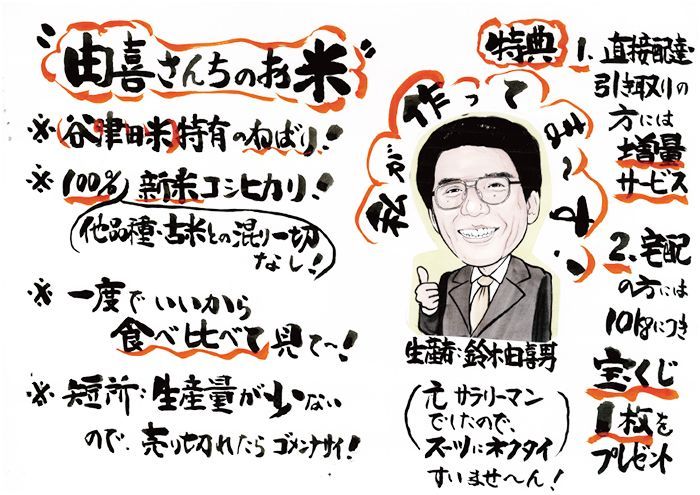 "由喜さんちのお米"
※谷津田米特有のねばり!
※100%新米コシヒカリ!
(他品種・古米との混り一切
なし!)
※一度でいいから
食べ比べて見て〜!
※短所:生産量が少ない
ので、売り切れたらゴメンナサイ!
私が作ってま〜す!
生産者:鈴木由喜男
(元サラリーマン
でしたので、
スーツにネクタイ
すいませ〜ん!)
特典
1.直接配達
引き取りの
方には
増量
サービス
2.宅配
の方には
10kgにつき
宝くじ
1枚を
プレゼント